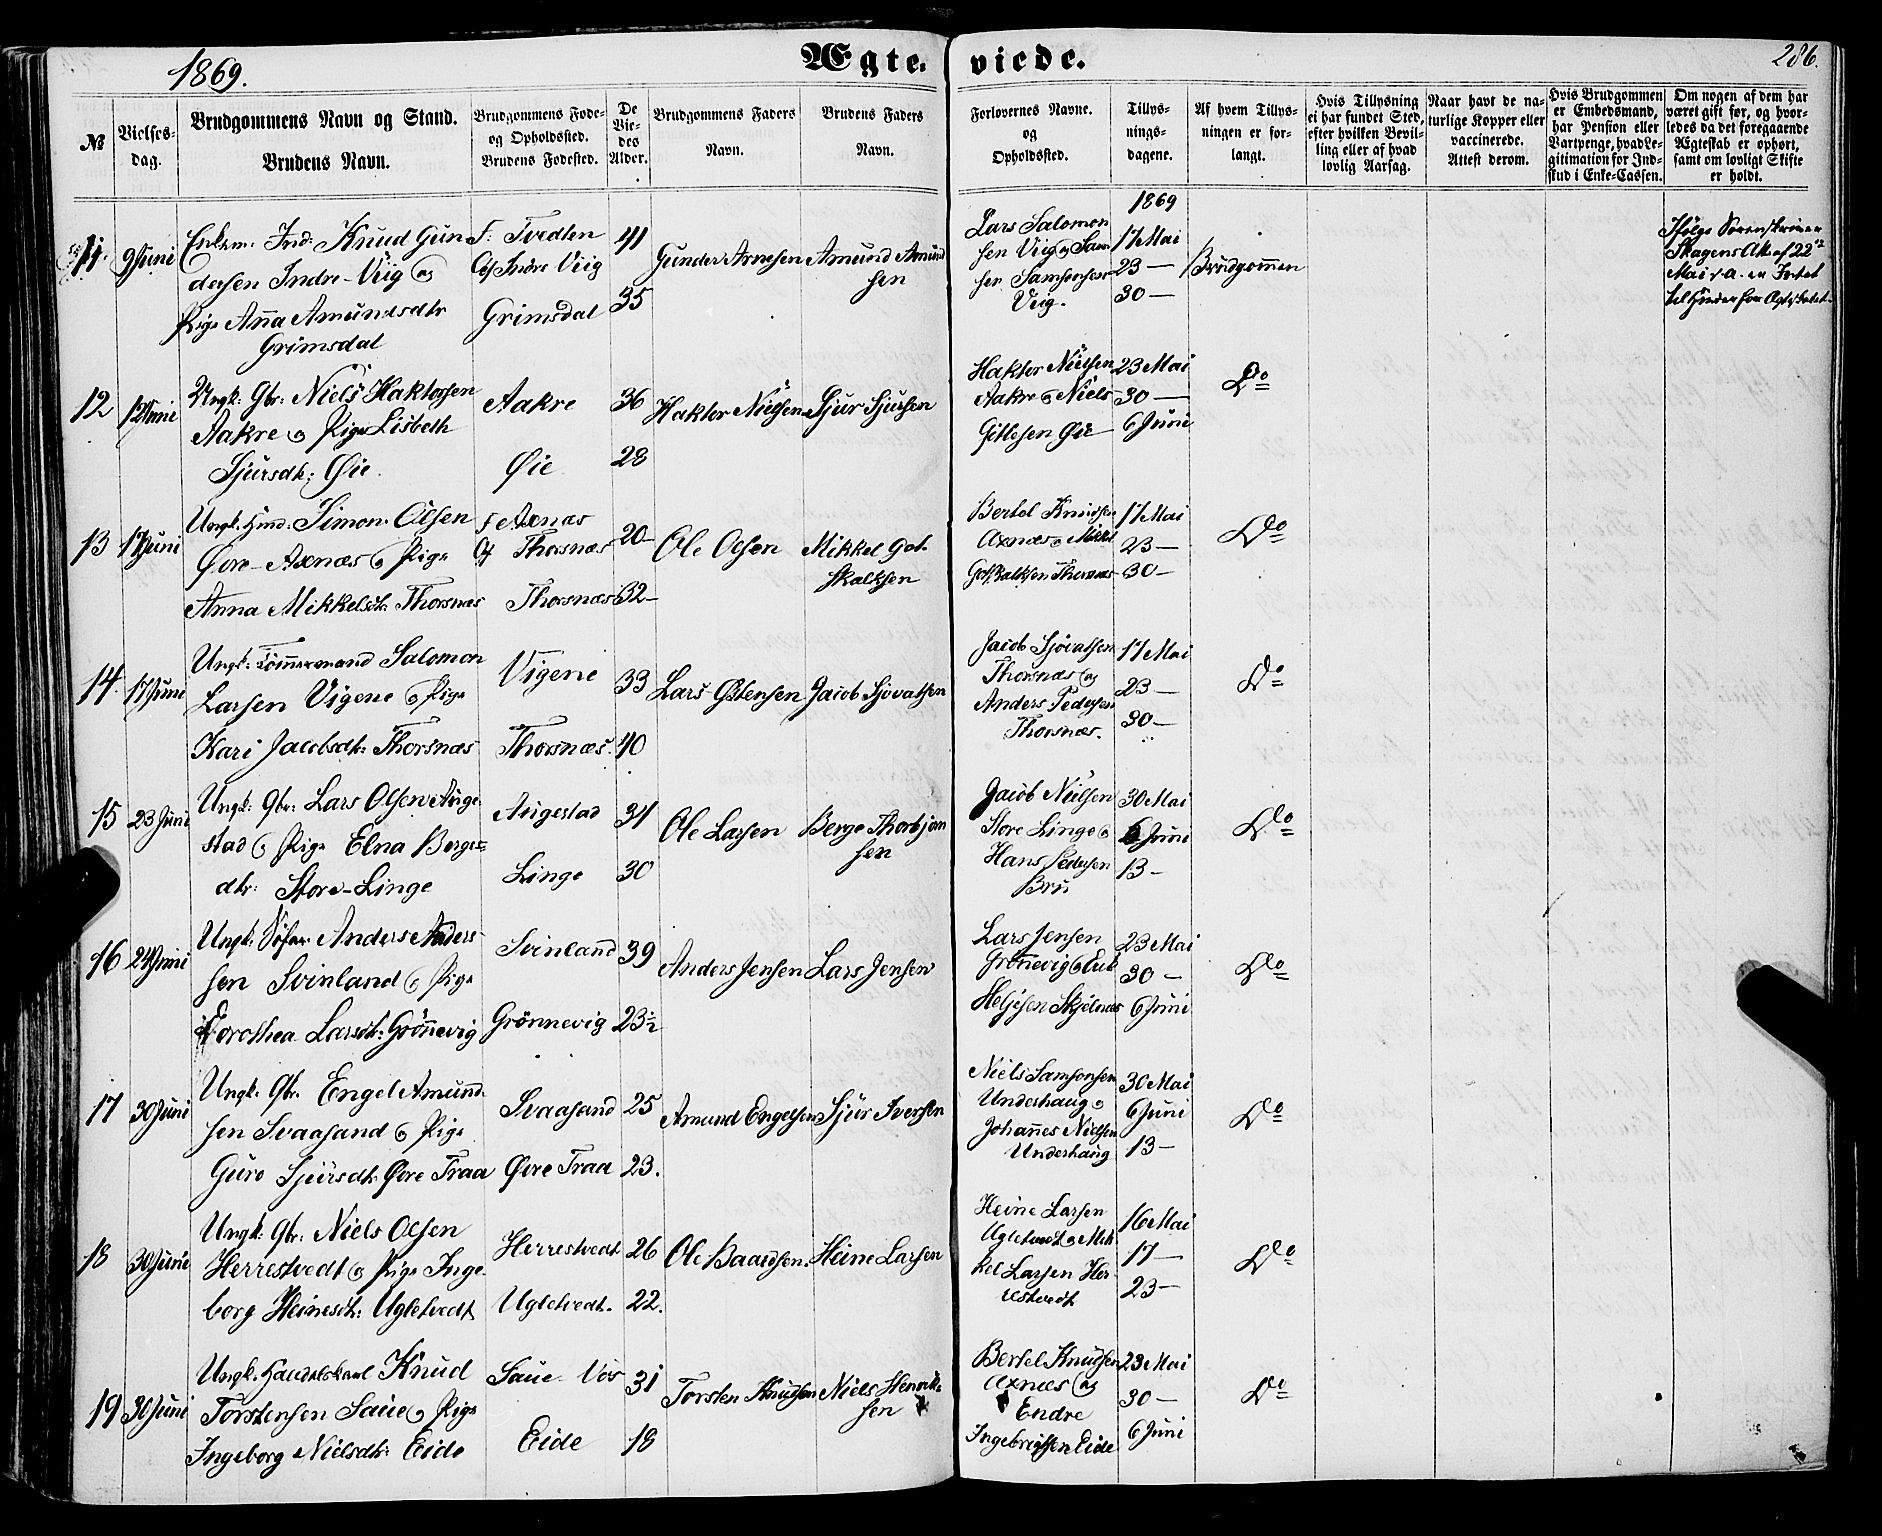 1869.
Ægteviede.
286.
No
Vielses-
dag.
Brudgommens Navn og Stand.
Brudens Navn.
Brudgommens Føde-
og Opholdssted.
Brudens Fødested.
De
Vie-
des
Alder.
Brudgommens Faders
Navn.
Brudens Faders
Navn.
Forlovernes Navne.
og
Opholdssted.
Tillys-
nings-
dagene.
Af hvem Tillys-
ningen er for-
langt.
Hvis Tillysning
ei har fundet Sted,
efter hvilken Bevil-
ling eller af hvad
lovlig Aarsag.
Naar havt de na-
turlige Kopper eller
vaccinerede.
Attest derom.
Hvis Brudgommen
er Embedsmand,
har Pension eller
Vartpenge, hvad Le-
gitimation for Ind-
skud i Enke-Cassen.
Om nogen af dem har
været gift før, og hvor-
ledes da det foregaaende
Ægteskab er ophørt,
samt om lovligt Skifte
er holdt.
11.
9 Juni
Enkem: Ind: Knud Gun
dersen Indre-Viig og
Pige Anna Amundsdtr
Grimsdal
F: Tvedten
O: Indre Viig
Grimsdal
41
35
Gunder Arnesen
Amund Amund
sen
Lars Salomon
sen Viig og Sam
sen Samsonsen
Viig.
1869
17 Mai
23 —
30 —
Brudgommen
Ifølge Sorenskriver
Skagens Att. af 22de
Mai d. a. er Intet
til Hinder for Ægteskabet.
12
12 Juni
Ungk: Gbr: Niels Haktorsen
Aakre og Pige Lisbeth
Sjursdtr: Øie.
Aakre
Øie
36
28
Haktor Nielsen
Sjur Sjursen
Haktor Nielsen
Aakre og Niels
Gitlesen Øie
23 Mai
30 —
6 Juni
Do
13
17 Juni
Ungk. Hmd. Simon Olsen
Øvre-Axnæs og Pige
Anna Mikkelsdtr: Thorsnæs
F Axnæs
O Thorsnæs
Thorsnæs
20
32
Ole Olsen
Mikkel Got-
skalksen
Bertel Knudsen
Axnæs og Mikkel
Gotskalksen Thorsnæs
17 Mai
23 —
30 —
Do
14.
17 Juni
Ungk: Tømmermand Salomon
Larsen Vigene og Pige
Kari Jacobsdtr: Thorsnæs
Vigene
Thorsnæs.
33
40
Lars Østensen
Jacob Sjovatsen
Jacob Sjovatsen
Thorsnæs og
Anders Pedersen
Thorsnæs.
17 Mai
23 —
30 —
Do
15
23 Juni
Ungk: Gbr: Lars Olsen Auge-
stad og Pige Elna Berges-
dtr: Store-Linge
Augestad
Linge
34
30
Ole Larsen
Berge Thorbjørn
sen
Jacob Nielsen
Store Linge og
Hans Pedersen
Bru
30 Mai
6 Juni
13 —
Do
16
24 Juni
Ungk: Søfar: Anders Anders-
sen Svinland og Pige
Dorothea Larsdtr: Grønnevig
Svinland
Grønnevig
39
23½
Anders Jensen
Lars Jensen
Lars Jensen
Grønevig og Erik
Heljesen Skjelnæs
23 Mai
30 —
6 Juni
Do
17
30 Juni
Ungk. Gbr. Engel Amund-
sen Svaasand og Pige
Guro Sjursdtr: Øvre Traa
Svaasand
Øvre Traa
25
23.
Amund Engelsen
Sjur Iversen
Niels Samsonsen
Underhaug og
Johannes Nielsen
Underhaug
30 Mai
6 Juni
13 —
Do
18
30 Juni
Ungk: Gbr: Niels Olsen
Herrestvedt og Pige Inge-
borg Heinesdtr: Ugletvedt
Herrestvedt
Ugletvedt.
26
22.
Ole Baardsen.
Heine Larsen
Heine Larsen
Ugletvedt og Mik
kel Larsen Her-
restvedt
16 Mai
17 —
23 —
Do
19
30 Juni
Ungk. Handelskarl Knud
Torstensen Saue og Pige
Ingeborg Nielsdtr: Eide
Saue Vos
Eide
31
18
Torsten Knudsen
Niels Henrik-
sen
Bertel Knudsen
Axnæs og
Endre
Ingebrigtsen Eide
23 Mai
30 —
6 Juni
Do